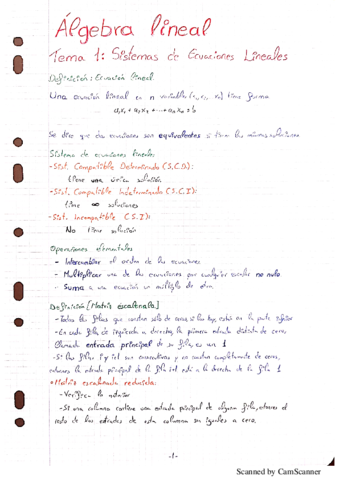 Álgebra lineal
Tema 1: Sistemas de Ecuaciones Lineales
Definición: Ecuación lineal
Una ecuación lineal en n variables (x₁, x₂, xₙ) tiene forma
a₁x₁ + a₂x₂ + ... + aₙxₙ = b
Se dice que dos ecuaciones son equivalentes si tienen las mismas soluciones
Sistema de ecuaciones lineales:
- Sist. Compatible Determinado (S.C.D):
tiene una única solución
- Sist. Compatible Indeterminado (S.C.I):
tiene ∞ soluciones
- Sist. Incompatible (S.I):
No tiene solución
Operaciones elementales
- Intercambiar el orden de las ecuaciones
- Multiplicar una de las ecuaciones por cualquier escalar no nulo
- Suma a una ecuación un múltiplo de otra.
Definición [Matriz escalonada]
- Todas las filas que constan solo de ceros, si las hay, están en la parte inferior
- En cada fila de izquierda a derecha, la primera entrada distinta de cero,
llamada entrada principal de su fila, es un 1
- Si las filas i y i+1 son consecutivas y no constan completamente de ceros,
entonces la entrada principal de la fila i+1 está a la derecha de la fila i
* Matriz escalonada reducida:
- Verifica lo anterior
- Si una columna contiene una entrada principal de alguna fila, entonces el
resto de las entradas de esta columna son iguales a cero.
-1-
Scanned by CamScanner